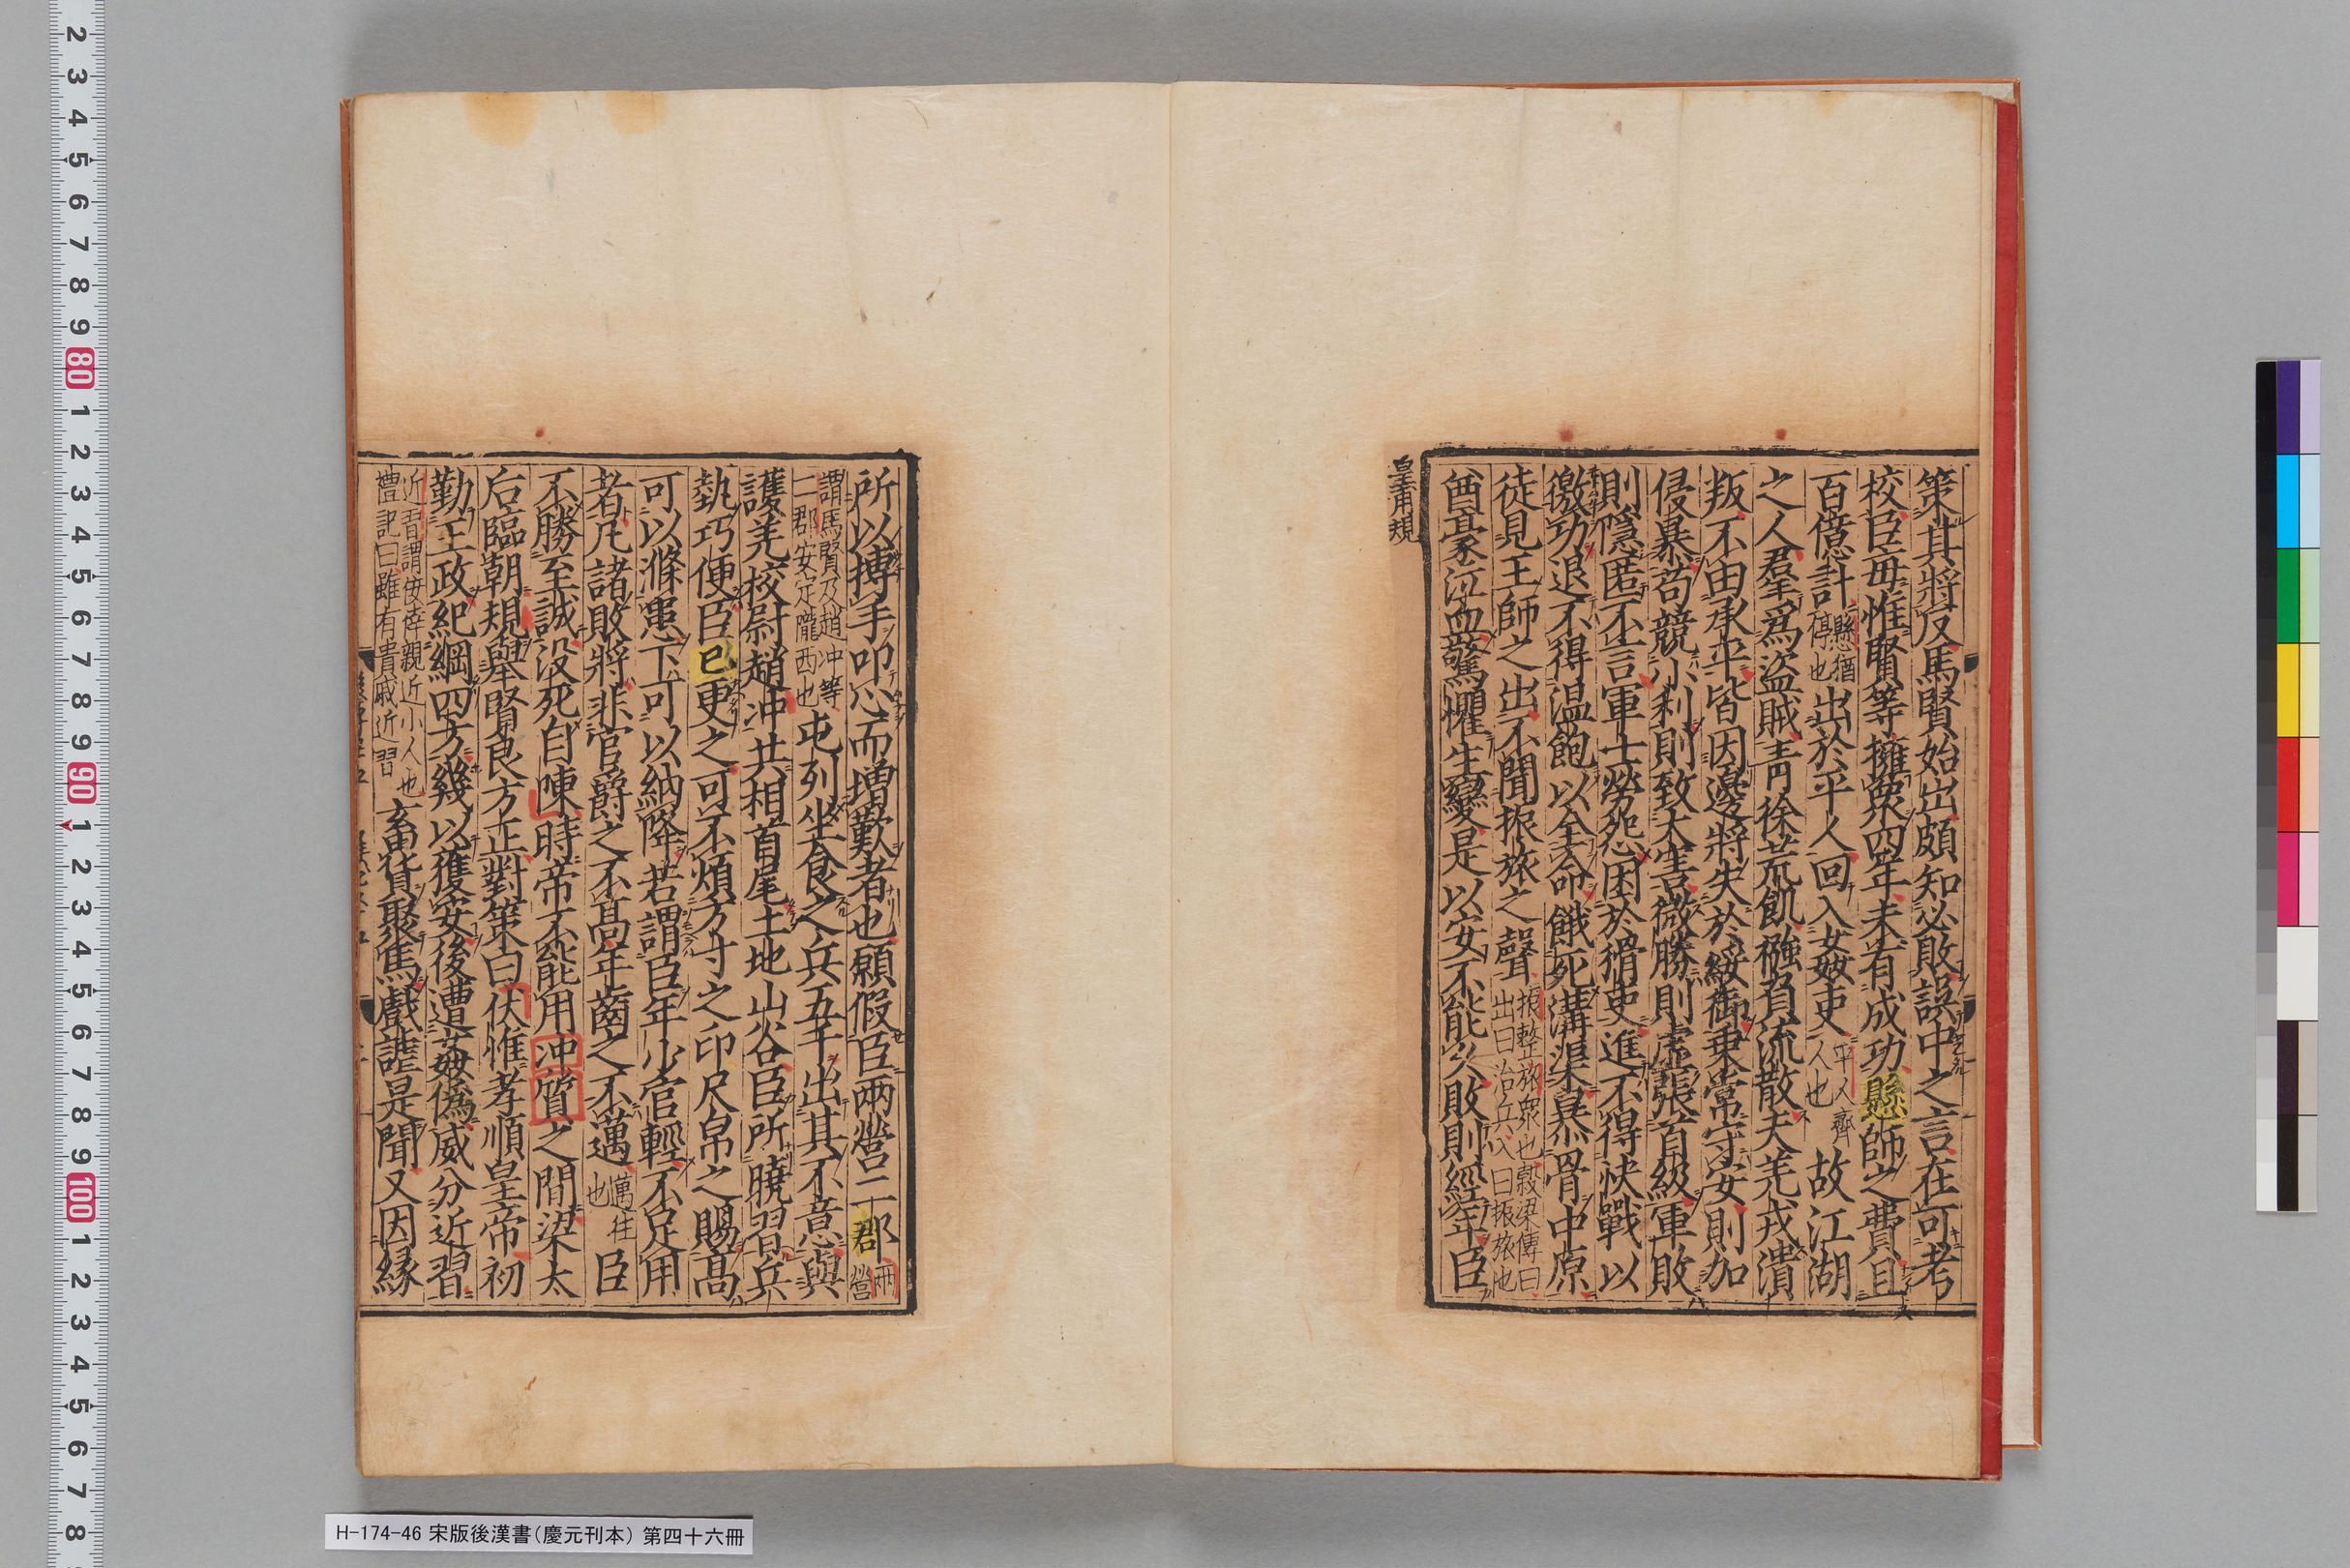 策其將反馬賢始出頗知必敗誤中之言在可考
校臣毎惟賢等擁衆四年未有成功縣師之費且
百億計縣猶停也出於平人回入姦吏平人齊人也故江湖
之人羣爲盜賊青徐荒飢襁負流散夫羌戎潰
叛不由承平皆因邊將失於綏御乗常守安則加
侵暴苟競小利則致大害微勝則虚張首級軍敗
則隱匿不言軍士勞怨困於猾吏進不得快戰以
徼功退不得温飽以全命餓死溝渠暴骨中原
徒見王師之出不聞振旅之聲振整旅衆也糓梁傳曰出曰治兵入曰振旅也
酋豪泣血驚懼生變是以安不能久敗則經年臣
皇甫規
所以搏手叩心而増歎者也願假臣兩營二郡兩營
謂馬賢及趙冲等二郡安定隴西也屯列坐食之兵五千出其不意與
護羌校尉趙冲共相首尾土地山谷臣所曉習兵
埶巧便臣已更之可不煩方寸之印尺帛之賜髙
可以滌患下可以納降若謂臣年少官輕不足用
者凡諸敗將非官爵之不髙年齒之不邁邁往也臣
不勝至誠没死自陳時帝不能用冲質之間梁太
后臨朝規舉賢良方正對策曰伏惟孝順皇帝初
勤王政紀綱四方幾以獲安後遭姦僞威分近習
近習謂佞倖親近小人也禮記曰雖有貴戚近習畜貨聚馬戲謔是聞又因縁
H-174-46 宋版後漢書(慶元刊本) 第四十六冊
2
3
4
5
6
7
8
9
80
1
2
3
4
5
6
7
8
9
90
1
2
3
4
5
6
7
8
9
100
1
2
3
4
5
6
7
8